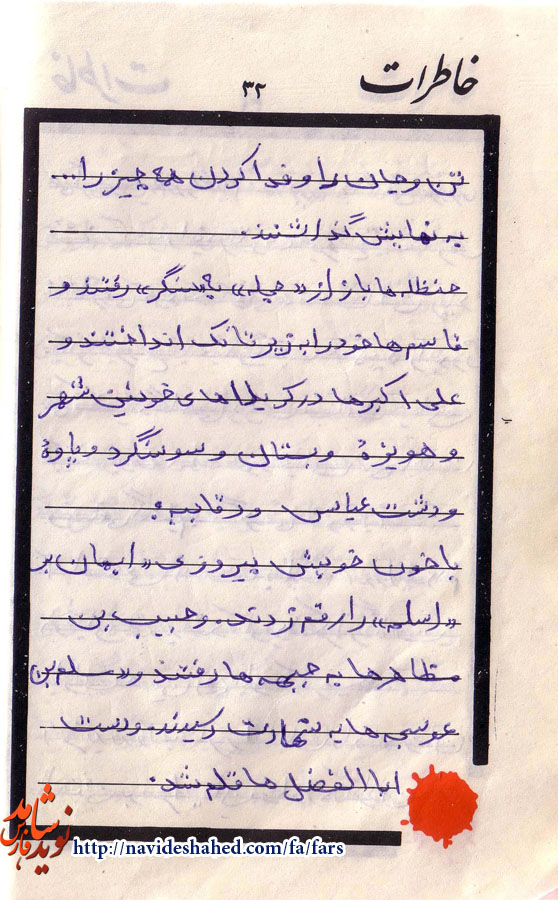 خاطرات
۳۲
تن و جان را و فدا کردن همه چیز را...
به نمایش گذاشتند.
حنظله ها باز از «حجله» به «سنگر» رفتند و
قاسم ها خود را به زیر تانک انداختند و
علی اکبرها در کربلاهای خونین شهر
و هویزه و بستان و سوسنگرد و پاوه
و دشت عباس و رقابیه؛
با خون خویش پیروزی «ایمان بر
«اسلحه» را رقم زدند. و حبیب بن
مظاهرها به جبهه ها رفتند و «مسلم بن
عوسجه ها به شهادت رسیدند. و دست
اباالفضل ها قلم شد.
نوید شاهد فارس
http://navideshahed.com/fa/fars